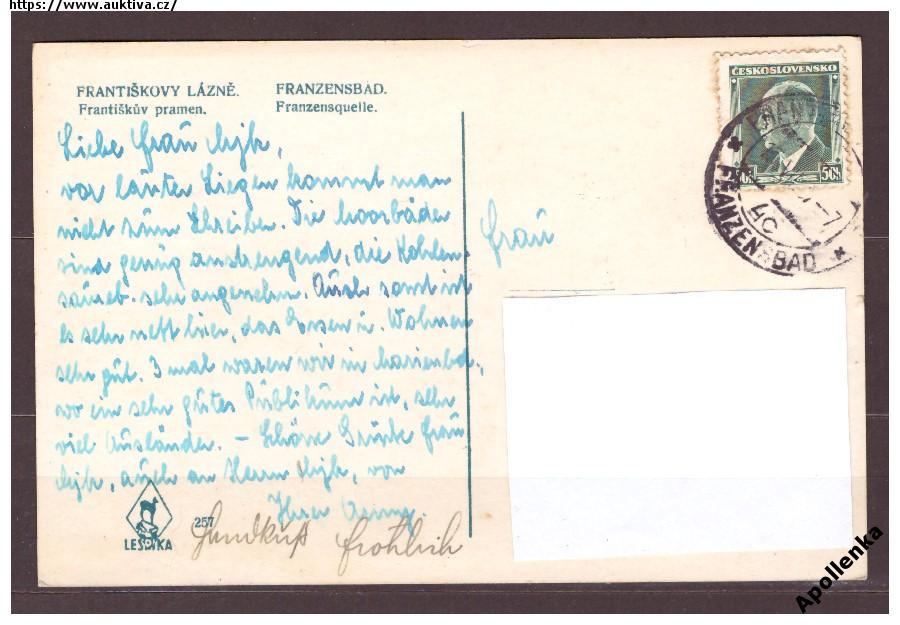 https://www.auktiva.cz/
FRANTIŠKOVY LÁZNĚ.
Františkův pramen.
FRANZENSBAD.
Franzensquelle.
Liebe Frau
vor lauter Liegen kommt man
nicht zum Schreiben. Die Moorbäder
sind genug anstrengend, die Kohlen-
säureb. sehr angenehm. Auch sonst ist
es sehr nett hier, das Essen u. Wohnen
sehr gut. 3 mal waren wir in Marienbd.,
wo ein sehr gutes Publikum ist, sehr
viel Ausländer. – Schöne Grüße Frau
auch an Herrn von
Ihrer
Handkuß Fröhlich
LESDIKA
257
Frau
ČESKOSLOVENSKO
50h
FRANZENSBAD
4C
Apollenka